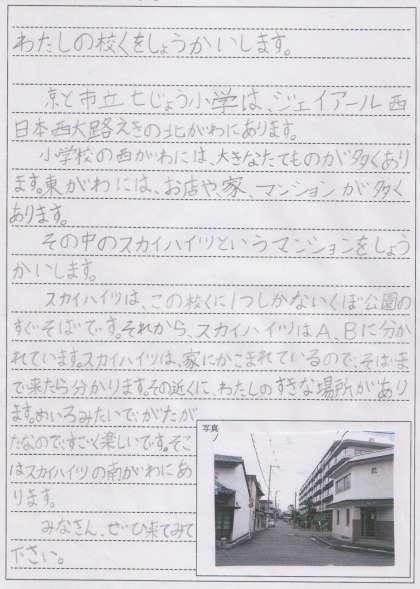 わたしの校くをしょうかいします。
京と市立七じょう小学は、ジェイアール西
日本西大路えきの北がわにあります。
小学校の西がわには、大きなたてものが多くあり
ます。東がわには、お店や、家、マンションが多く
あります。
その中のスカイハイツというマンションをしょう
かいします。
スカイハイツは、この校くに1つしかないくぼ公園の
すぐそばです。それから、スカイハイツはA、Bに分か
れています。スカイハイツは、家にかこまれているので、そばま
で来たら分かります。その近くに、わたしのすきな場所があり
ます。めいろみたいでがたが
たなのですごく楽しいです。そこ
はスカイハイツの南がわにあ
ります。
みなさん、ぜひ来てみて
下さい。
写真